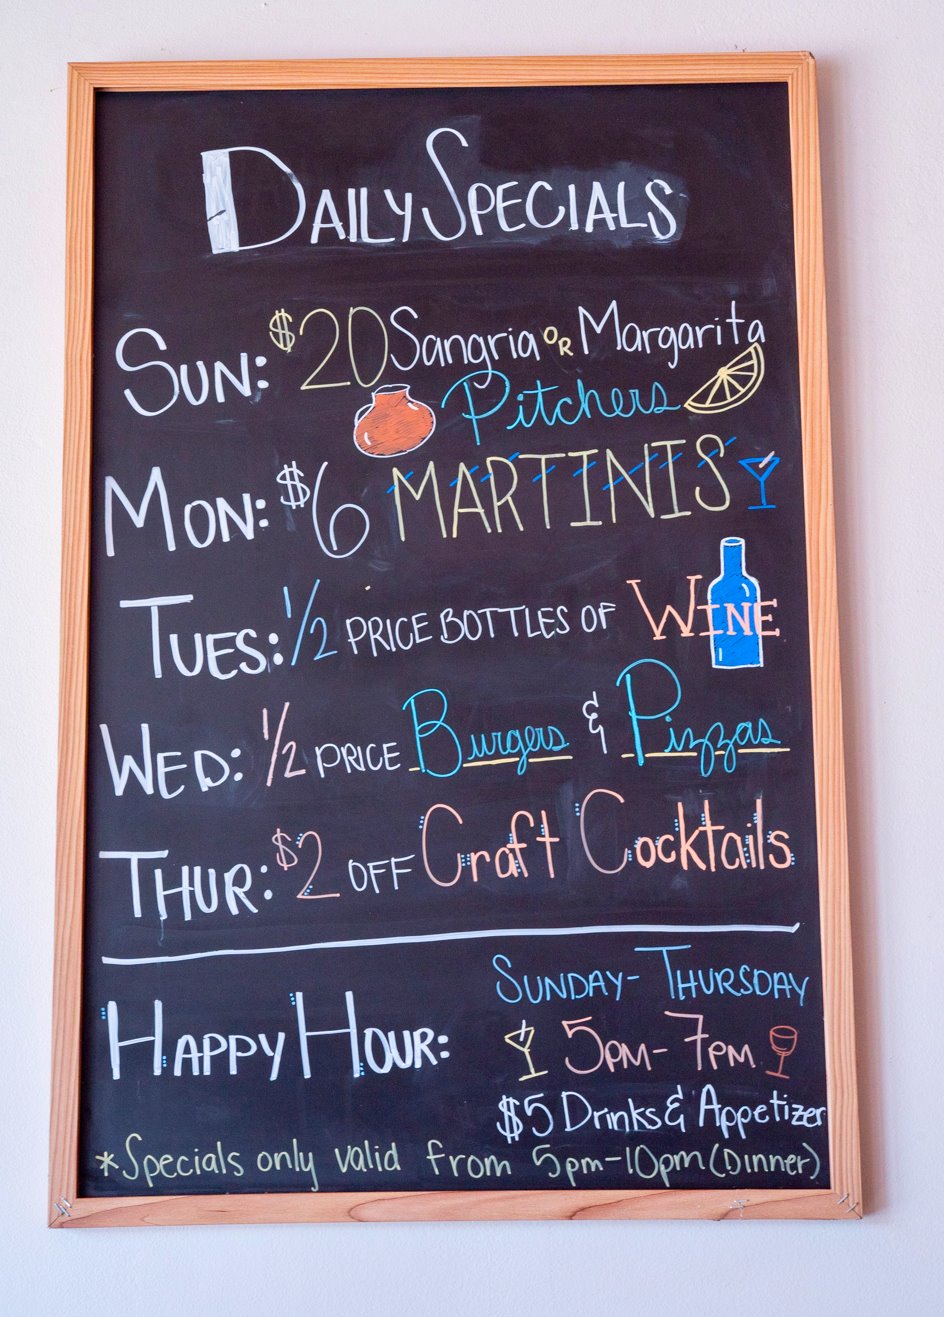 DAILY SPECIALS
SUN: $20 Sangria OR Margarita
Pitchers
MON: $6 MARTINIS
TUES: 1/2 PRICE BOTTLES OF WINE
WED: 1/2 PRICE Burgers & Pizzas
THUR: $2 OFF Craft Cocktails
SUNDAY- THURSDAY
HAPPY HOUR: 5PM- 7PM
$5 Drinks & Appetizer
*Specials only valid from 5pm-10pm (Dinner)